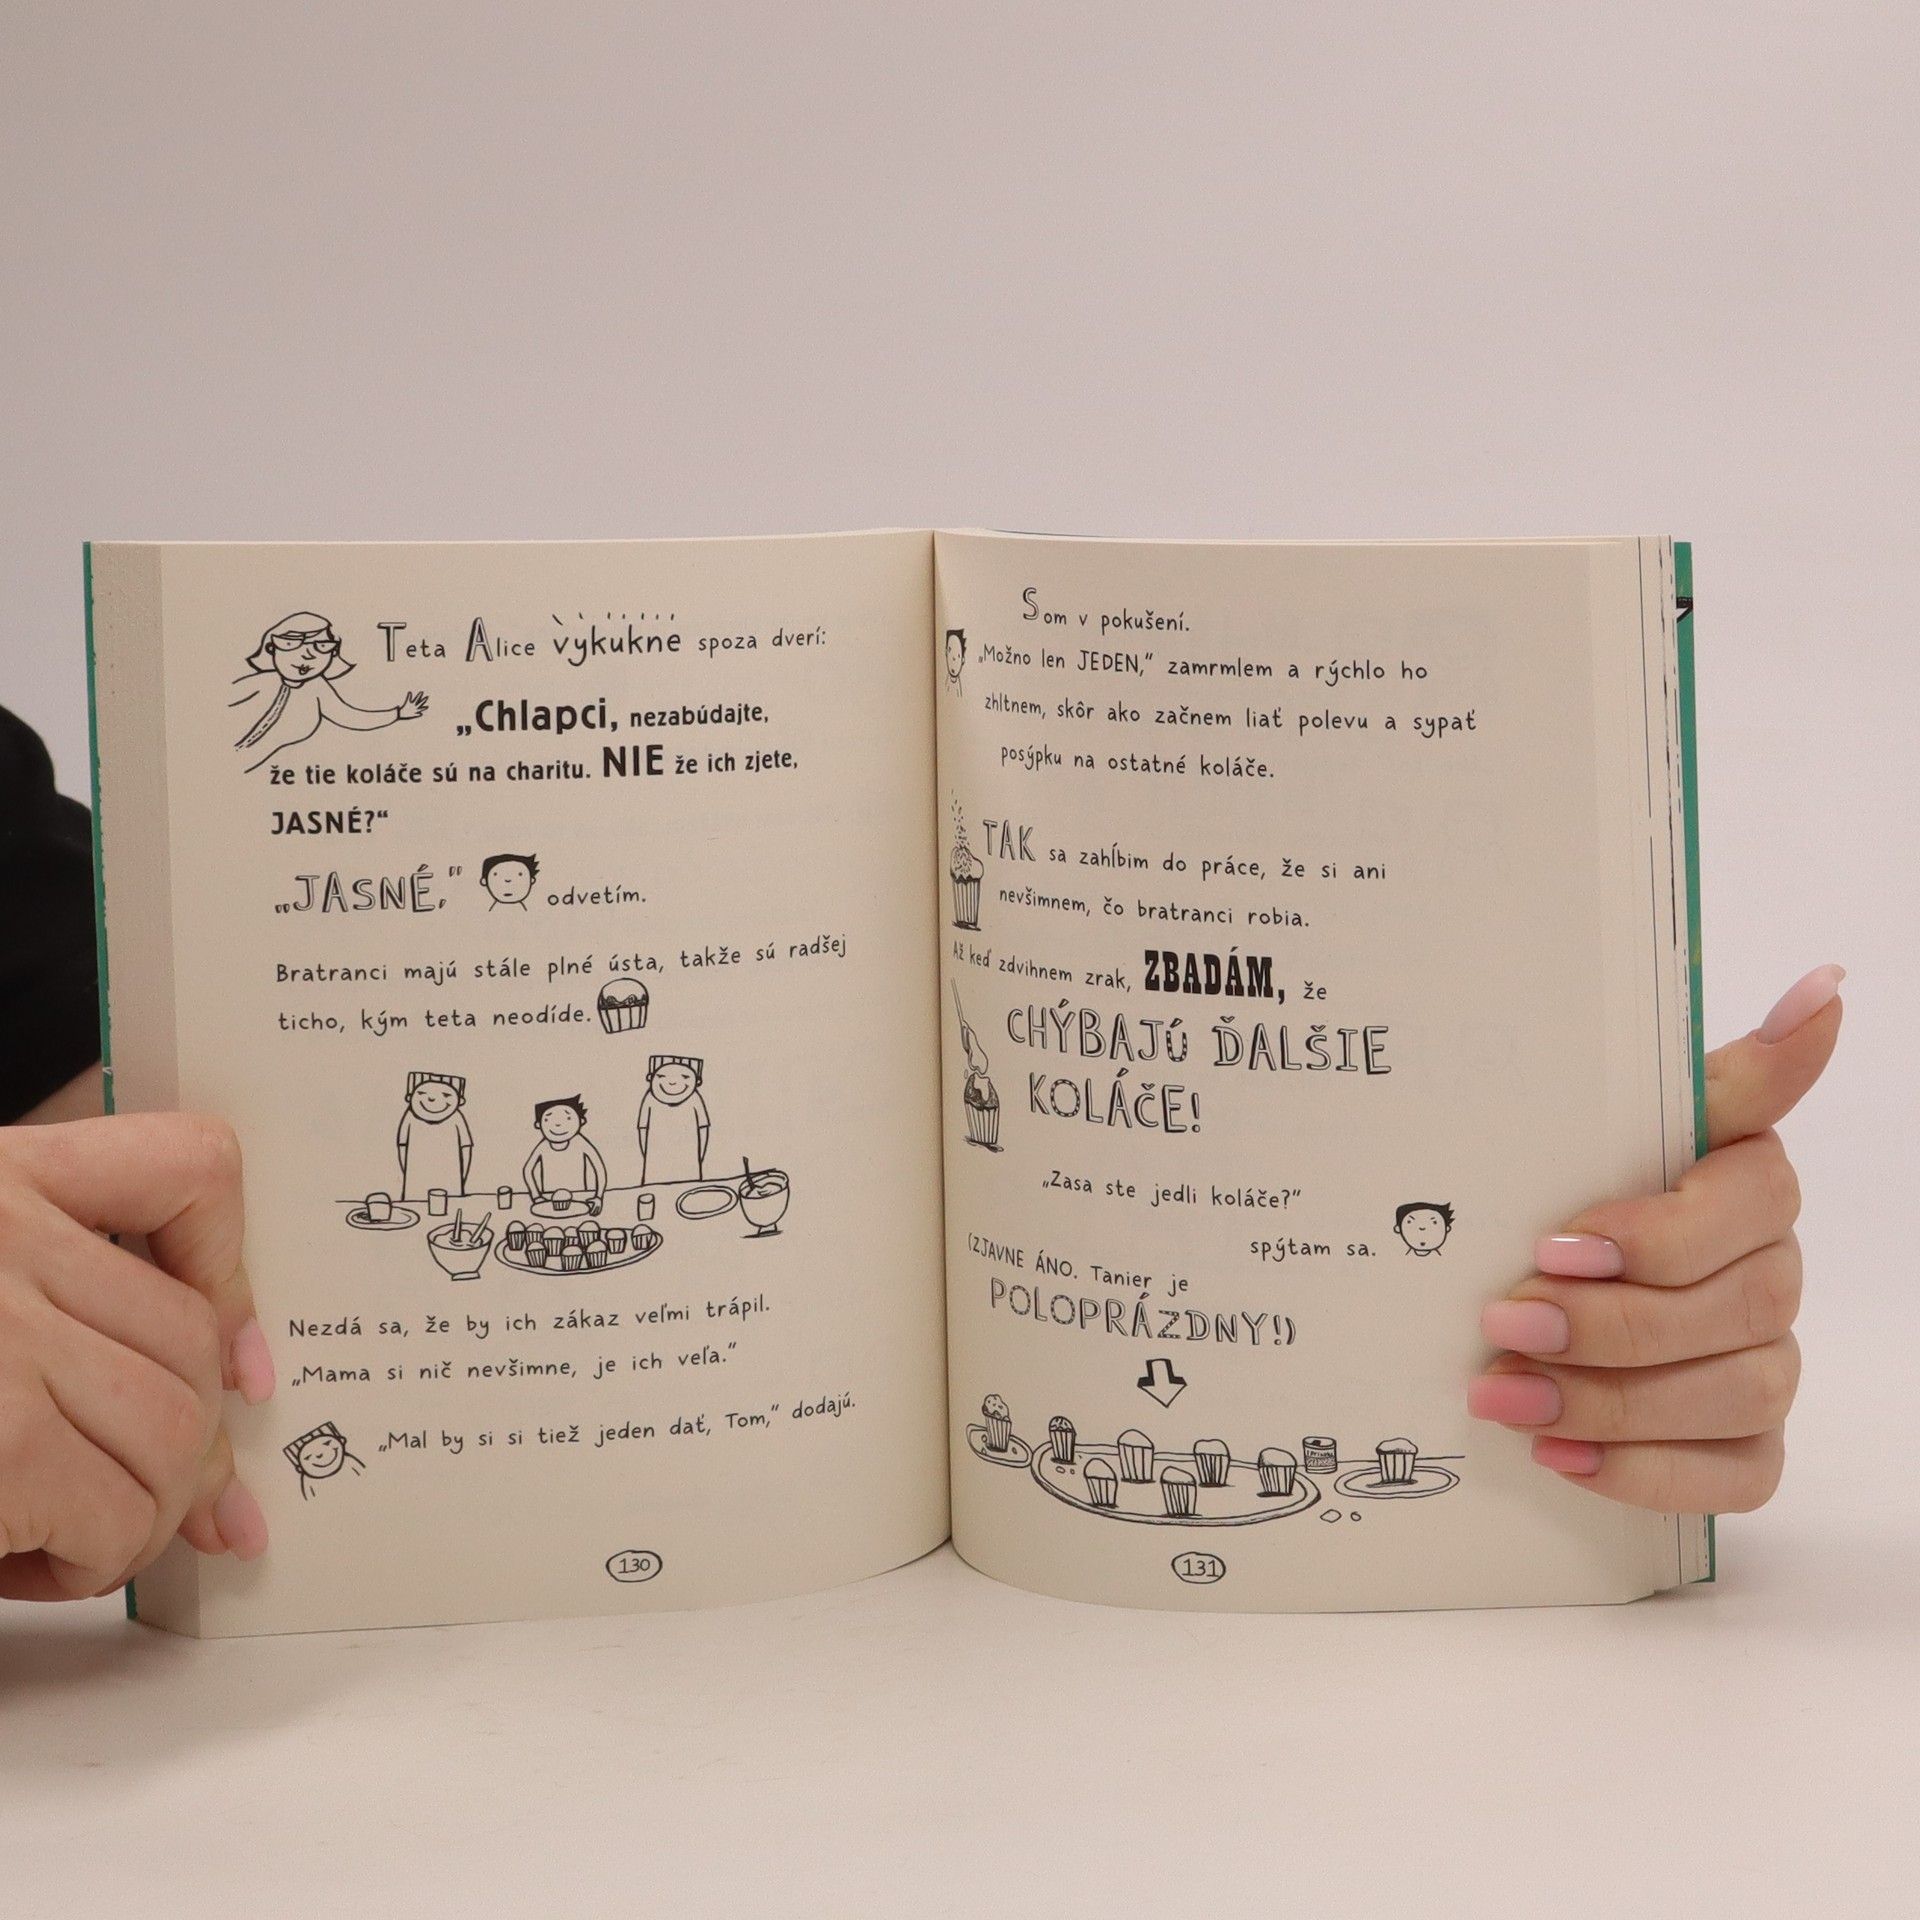 Teta Alice vykukne spoza dverí:
„Chlapci, nezabúdajte,
že tie koláče sú na charitu. NIE že ich zjete,
JASNÉ?“
„JASNÉ,“ odvetím.
Bratranci majú stále plné ústa, takže sú radšej
ticho, kým teta neodíde.
Nezdá sa, že by ich zákaz veľmi trápil.
„Mama si nič nevšimne, je ich veľa.“
„Mal by si si tiež jeden dať, Tom,“ dodajú.
130
Som v pokušení.
„Možno len JEDEN,“ zamrmlem a rýchlo ho
zhltnem, skôr ako začnem liať polevu a sypať
posýpku na ostatné koláče.
TAK sa zahĺbim do práce, že si ani
nevšimnem, čo bratranci robia.
Až keď zdvihnem zrak, ZBADÁM, že
CHÝBAJÚ ĎALŠIE
KOLÁČE!
„Zasa ste jedli koláče?“
spýtam sa.
(ZJAVNE ÁNO. Tanier je
POLOPRÁZDNY!)
131